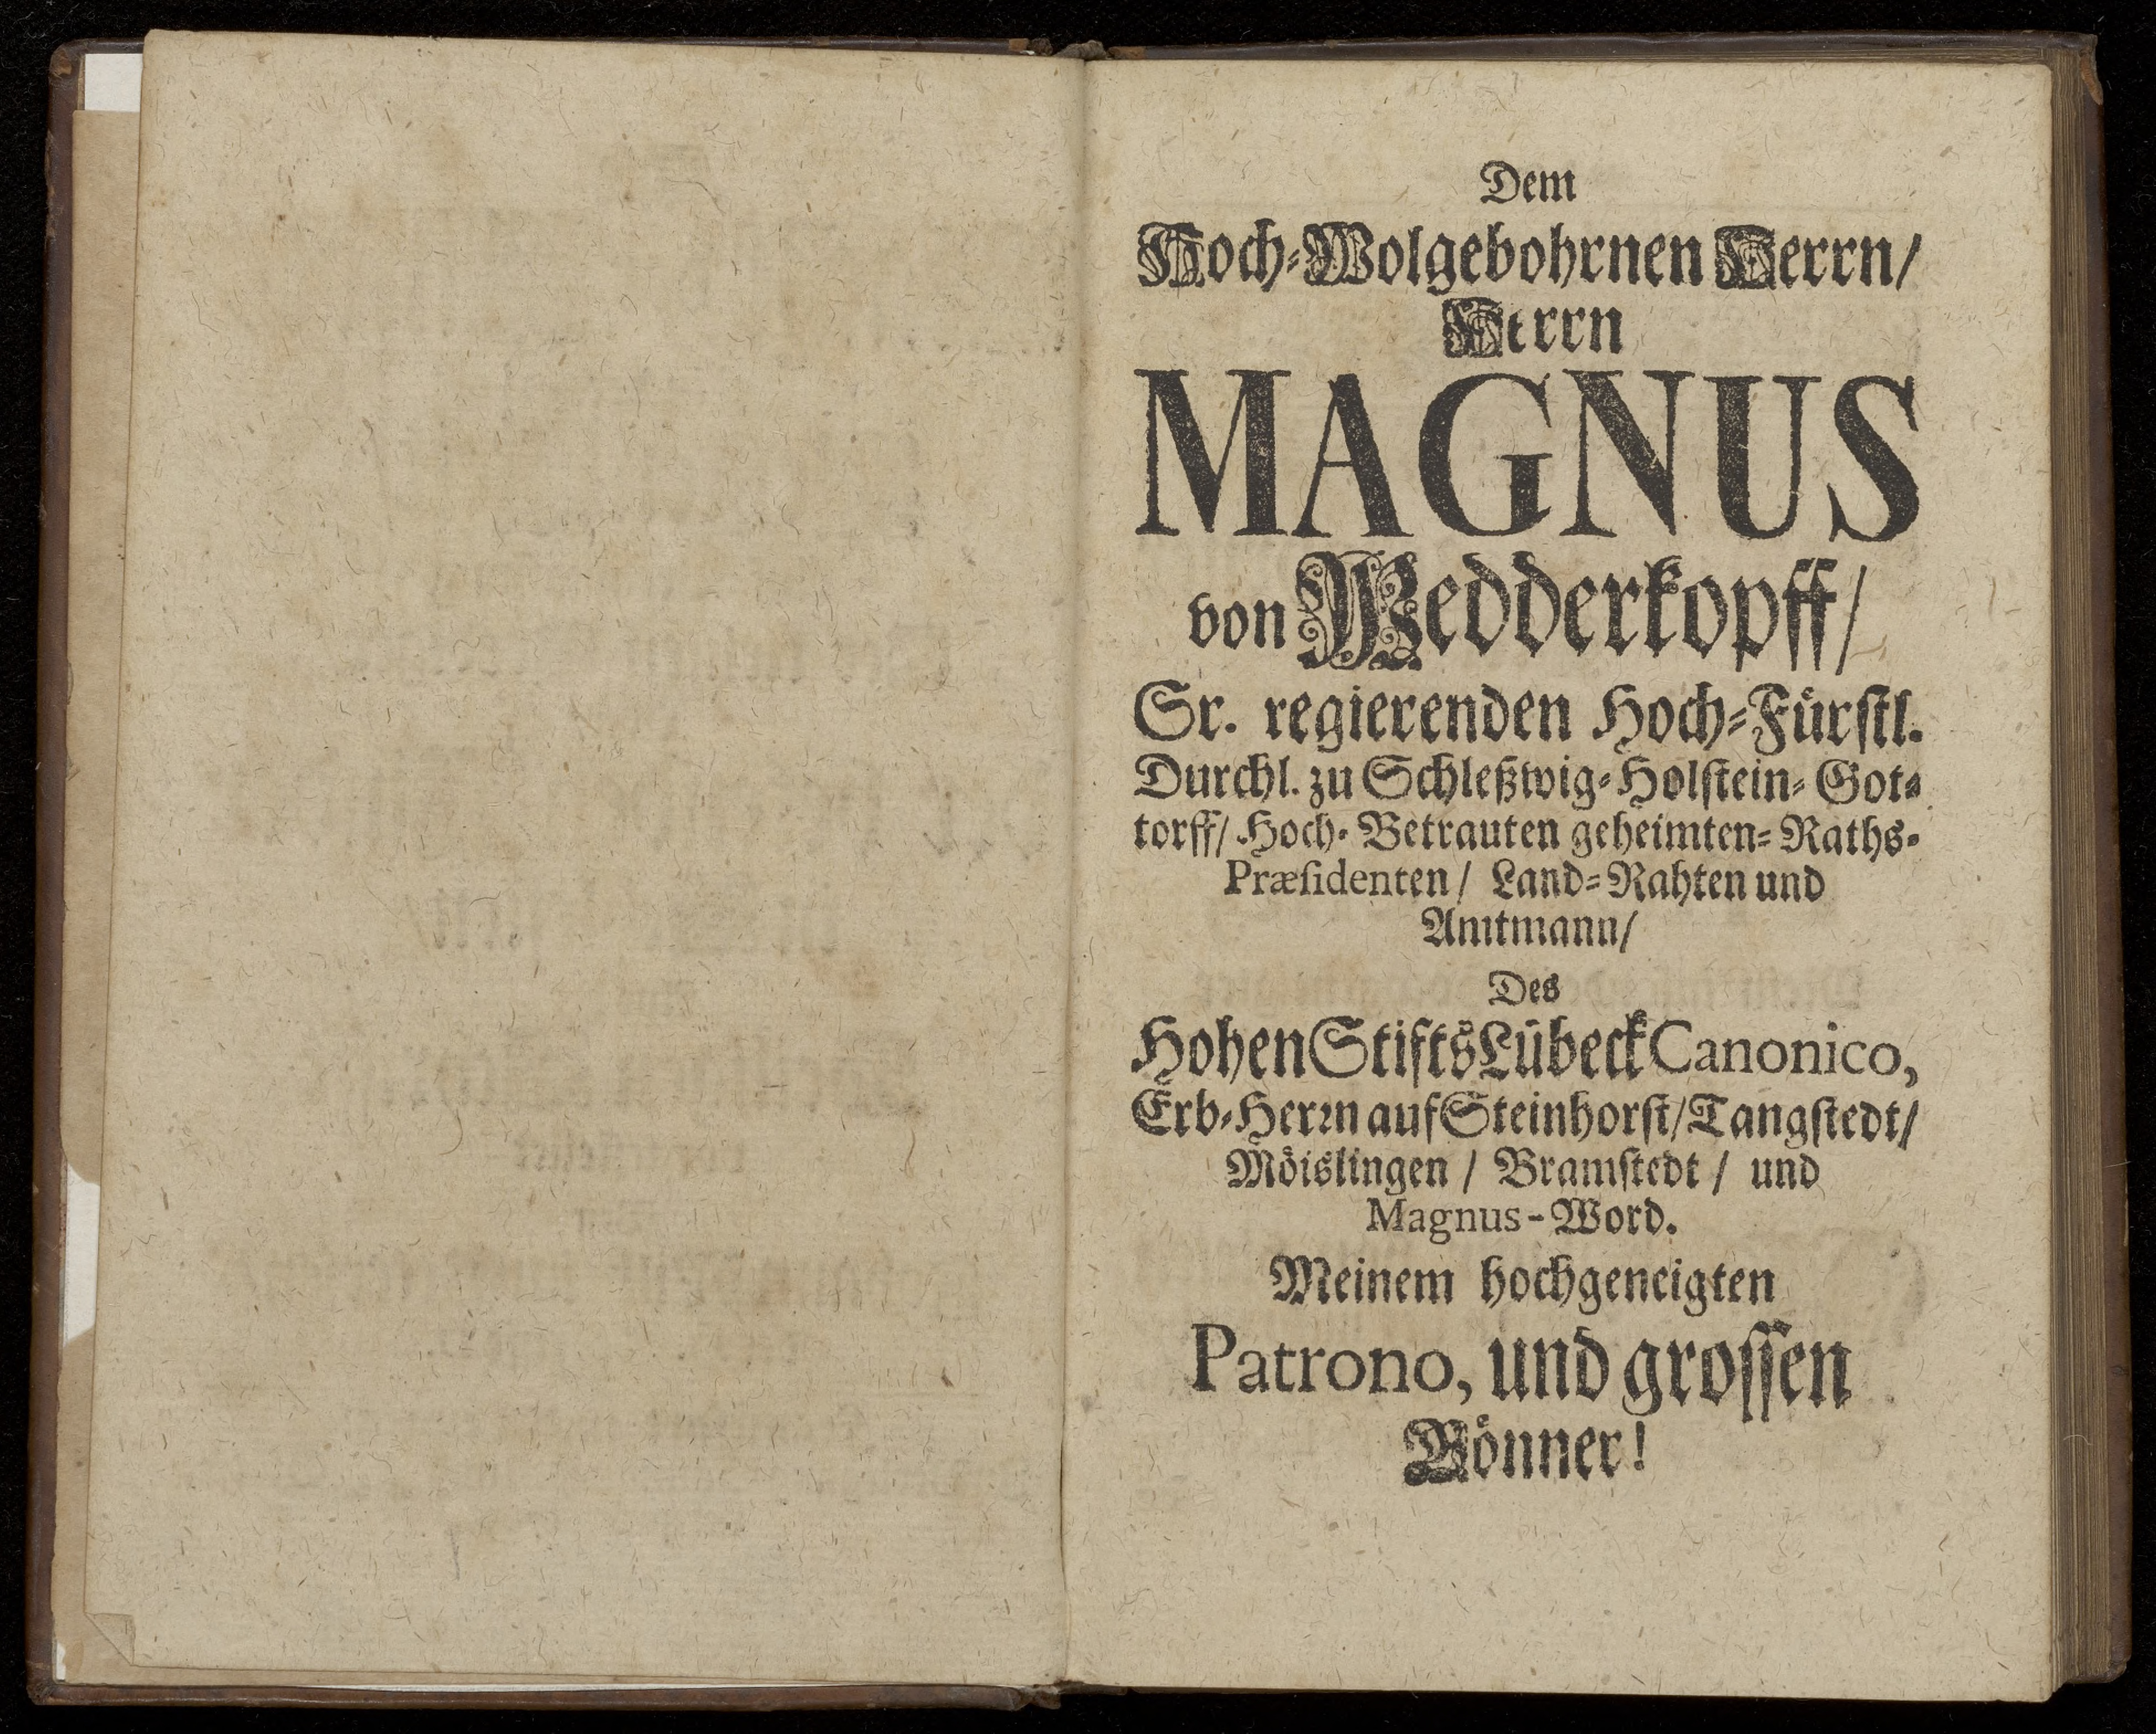 Dem
Hoch-Wolgebohrnen Herrn/
Herrn
MAGNUS
von Wedderkopff/
Sr. regierenden Hoch-Fürstl.
Durchl. zu Schleßwig-Holstein-Got-
torff/ Hoch-Betrauten geheimten-Raths-
Præsidenten/ Land-Rahten und
Amtmann/
Des
Hohen Stifts Lübeck Canonico,
Erb-Herrn auf Steinhorst/ Tangstedt/
Möislingen / Bramstedt / und
Magnus-Word.
Meinem hochgeneigten
Patrono, und grossen
Gönner!